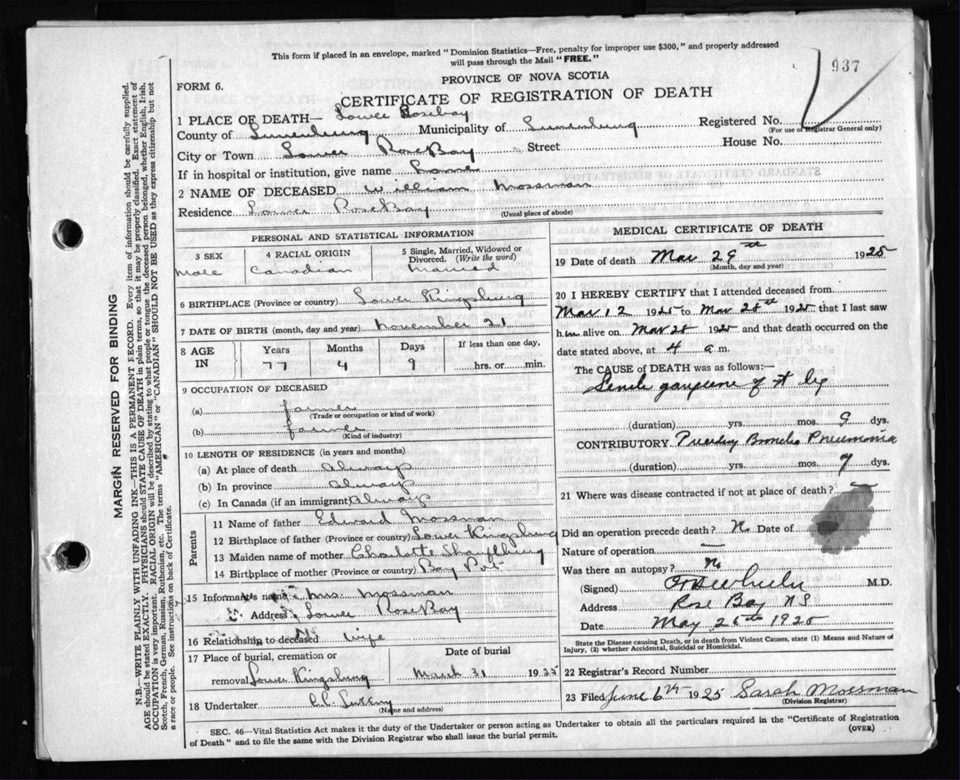 This form if placed in an envelope, marked "Dominion Statistics—Free, penalty for improper use $300," and properly addressed
will pass through the Mail "FREE."
937
PROVINCE OF NOVA SCOTIA
FORM 6.
CERTIFICATE OF REGISTRATION OF DEATH
1 PLACE OF DEATH— Lower Rosebay
Registered No.
(For use of Registrar General only)
County of Lunenburg Municipality of Lunenburg
City or Town Lower RoseBay Street House No.
If in hospital or institution, give name Home
2 NAME OF DECEASED William Mossman
Residence Lower RoseBay
(Usual place of abode)
PERSONAL AND STATISTICAL INFORMATION
3 SEX 4 RACIAL ORIGIN 5 Single, Married, Widowed or
Divorced. (Write the word)
Male Canadian Married
6 BIRTHPLACE (Province or country) Lower Kingsburg
7 DATE OF BIRTH (month, day and year) November 21
8 AGE IN Years Months Days If less than one day,
77 4 9 hrs. or min.
9 OCCUPATION OF DECEASED
(a) farmer
(Trade or occupation or kind of work)
(b) farmer
(Kind of industry)
10 LENGTH OF RESIDENCE (in years and months)
(a) At place of death Always
(b) In province Always
(c) In Canada (if an immigrant) Always
Parents
11 Name of father Edward Mossman
12 Birthplace of father (Province or country) Lower Kingsburg
13 Maiden name of mother Charlotte
14 Birthplace of mother (Province or country) Bay Pt
15 Informants name Mrs. Mossman
Address Lower RoseBay
16 Relationship to deceased Wife
17 Place of burial, cremation or Date of burial
removal Lower Kingsburg March 31 1925
18 Undertaker
(Name and address)
MEDICAL CERTIFICATE OF DEATH
19 Date of death Mar 29th 1925
(Month, day and year)
20 I HEREBY CERTIFY that I attended deceased from
Mar 12 1925 to Mar 28th 1925 that I last saw
him alive on Mar 28 1925 and that death occurred on the
date stated above, at 4 a m.
The CAUSE of DEATH was as follows:—
Senile gangrene of rt leg
(duration) yrs. mos. 9 dys.
CONTRIBUTORY. Broncho Pneumonia
(duration) yrs. mos. 7 dys.
21 Where was disease contracted if not at place of death? —
Did an operation precede death? No Date of
Nature of operation —
Was there an autopsy? No
(Signed) M.D.
Address Rose Bay N.S
Date May 26th 1925
State the Disease causing Death, or in death from Violent Causes, state (1) Means and Nature of
Injury, (2) whether Accidental, Suicidal or Homicidal.
22 Registrar's Record Number
23 Filed June 6th 1925 Sarah Mossman
(Division Registrar)
SEC. 46—Vital Statistics Act makes it the duty of the Undertaker or person acting as Undertaker to obtain all the particulars required in the "Certificate of Registration
of Death" and to file the same with the Division Registrar who shall issue the burial permit.
(OVER)
MARGIN RESERVED FOR BINDING
N.B.—WRITE PLAINLY WITH UNFADING INK—THIS IS A PERMANENT RECORD. Every item of information should be carefully supplied.
AGE should be stated EXACTLY. PHYSICIANS should STATE CAUSE OF DEATH in plain terms, so that it may be properly classified. Exact statement of
OCCUPATION is very important. RACIAL ORIGIN will be described by stating to what people or tongue the deceased person belonged, whether English, Irish,
Scotch, French, German, Russian, Ruthenian, etc. The terms "AMERICAN" or "CANADIAN" SHOULD NOT BE USED as they express citizenship but not
a race or people. See instructions on back of Certificate.